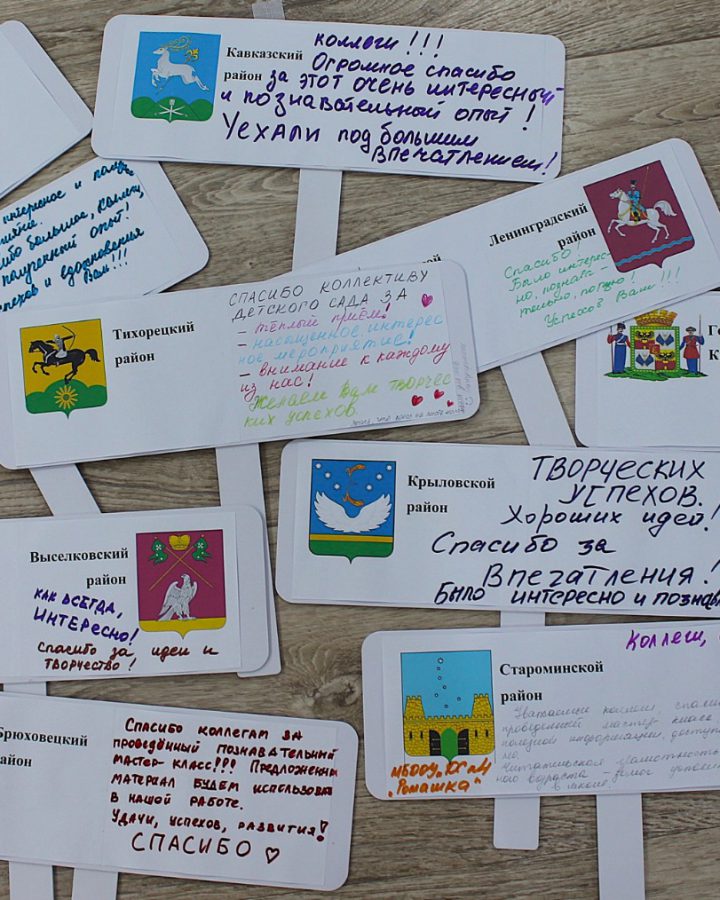 Кавказский
район
коллеги!!!
Огромное спасибо
за этот очень интересный
и познавательный опыт!
Уехали под большим
впечатлением!
интересное и
большое, коллеги,
полученный опыт!
успехов и вдохновения
Вам!!!
Ленинградский
район
Спасибо!
Было интерес-
но, познава-
тельно, !
Успехов Вам!!!
Тихорецкий
район
СПАСИБО КОЛЛЕКТИВУ
ДЕТСКОГО САДА ЗА
- тёплый приём!
- насыщенное, интерес
ное мероприятие!
- внимание к каждому
из нас!
Желаем Вам творчес
ких успехов.
Крыловской
район
ТВОРЧЕСКИХ
УСПЕХОВ.
Хороших идей!
Спасибо за
Впечатления!
Было интересно и познав
Выселковский
район
КАК ВСЕГДА,
ИНТЕРЕСНО!
Спасибо за идеи и
творчество!
Староминской
район
Коллеги,
Уважаемые коллеги,
мастер-класс
информации, доступ
но.
Читательская грамотность
ного возраста -
в школе.
"Ромашка"
Брюховецкий
район
Спасибо коллегам за
проведённый познавательный
мастер-класс!!! Предложенный
материал будем использовать
в нашой работе.
Удачи, успехов, развития!
СПАСИБО ♡